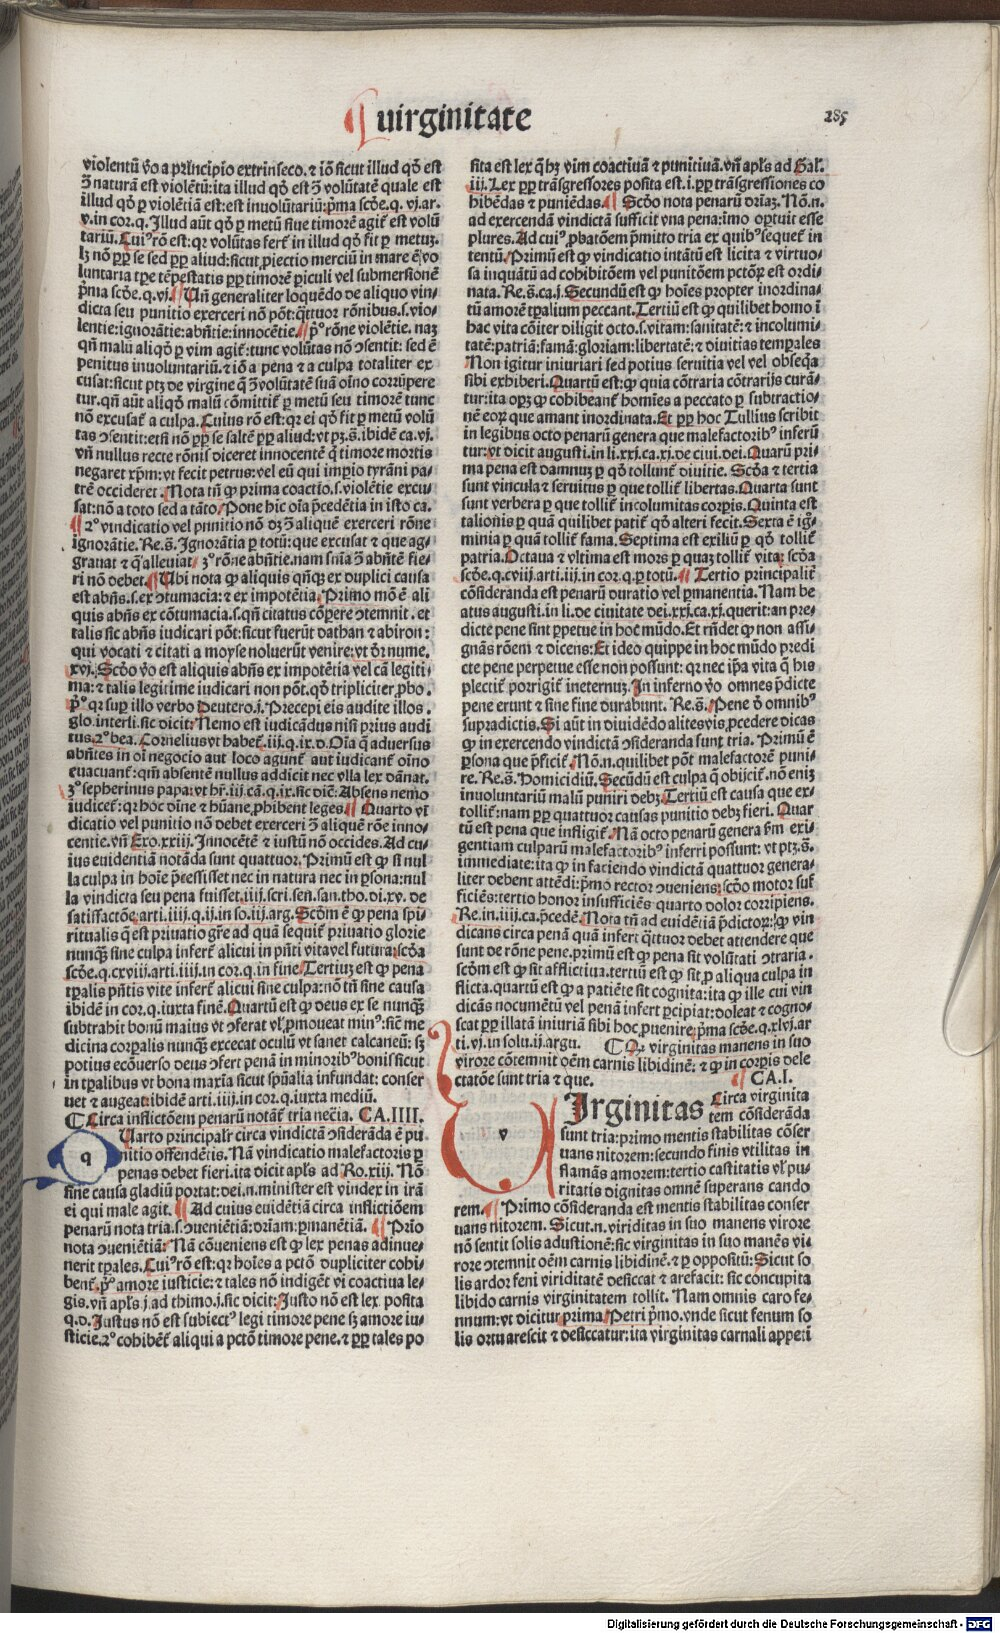 ¶ uirginitate
285
violentū v̄o a principio extrinseco. ⁊ iō sicut illud qd̄ est
ɔ̄ naturā est violētū: ita illud qd̄ est ɔ̄ volūtatē quale est
illud qd̄ ꝑ violētiā est: est inuolūtariū: p̄ma scd̄e. q. vj. ar.
v. in cor. q. Illud aūt qd̄ ꝑ metū siue timorē agit᷑ est volū
tariū. Cuiꝰ rō est: qꝛ volūtas fert᷑ in illud qd̄ fit ꝑ metuꝫ.
lꝫ nō ꝓp̄ se sed ꝓp̄ aliud: sicut ꝓiectio merciū in mare ē vo
luntaria tꝑe tēpestatis ꝓp̄ timorē ꝑiculi vel submersionē
p̄ma scd̄e. q. vj. ¶ Vn̄ generaliter loquēdo de aliquo vin⸗
dicta seu punitio exerceri nō pōt: q̄ttuor rōnibus. s. vio⸗
lentie: ignorātie: abn̄tie: innocētie. ¶ pº rōne violētie. naꝫ
qn̄ malū aliqd̄ ꝑ vim agit᷑: tunc volūtas nō ɔsentit: sed ē
penitus inuoluntariū. ⁊ iō a pena ⁊ a culpa totaliter ex
cusat: sicut ptꝫ de virgine q̄ ɔ̄ volūtatē suā oīno corrūpere
tur. qn̄ aūt aliqd̄ malū cōmittit᷑ ꝑ metū seu timorē tunc
nō excusat᷑ a culpa. Cuius rō est: qꝛ ei qd̄ fit ꝑ metū volū
tas ɔsentit: etsi nō ꝓp̄ se saltē ꝓp̄ aliud: vt pꝫ. s. ibidē ca. vj.
vn̄ nullus recte rōnis diceret innocentē q̄ timore mortis
negaret xp̄m: vt fecit petrus: vel eū qui imꝑio tyrāni pa⸗
trē occideret. Nota tn̄ ꝙ prima coactio. s. violētie excu⸗
sat: nō a toto sed a tāto. Pone hic oīa p̄cedētia in isto ca.
¶ 2º vindicatio vel punitio nō dꝫ ɔ̄ aliquē exerceri rōne
ignorātie. Re. s̄. Ignorātia ꝑ totū: que excusat ⁊ que ag⸗
grauat ⁊ q̄ alleuiat. 3º rōne abn̄tie. nam sn̄ia ɔ̄ abn̄tē fie⸗
ri nō debet. ¶ Ubi nota ꝙ aliquis qn̄qꝫ ex duplici causa
est abn̄s. s. ex ɔtumacia: ⁊ ex impotētia. Primo mō ē ali
quis abn̄s ex cōtumacia. s. qn̄ citatus cōꝑere ɔtemnit. et
talis sic abn̄s iudicari pōt: sicut fuerūt dathan ⁊ abiron:
qui vocati ⁊ citati a moyse noluerūt venire: vt dr̄ nume.
xvj. Scd̄o v̄o est aliquis abn̄s ex impotētia vel cā legiti⸗
ma: ⁊ talis legitime iudicari non pōt. qd̄ tripliciter ꝓbo.
pº qꝛ sup illo verbo Deutero. j. Precepi eis audite illos.
glo. interli. sic dicit: Nemo est iudicādus nisi prius audi
tus. 2º bea. Cornelius vt habet᷑. iij. q. ix. d. Oīa q̄ aduersus
abn̄tes in oī negocio aut loco agunt᷑ aut iudicant᷑ oīno
euacuant᷑: qm̄ absentē nullus addicit nec vlla lex dānat.
3º sepherinus papa: vt hr̄. iij. cā. q. ix. sic diē: Absens nemo
iudicet᷑: qꝛ hoc diīne ⁊ hūane ꝓhibent leges. ¶ Quarto vī
dicatio vel punitio nō debet exerceri ɔ̄ aliquē rōe inno⸗
centie. vn̄ Exo. xxiij. Innocētē ⁊ iustū nō occides. Ad cu⸗
ius euidentiā notāda sunt quattuor. Primū est ꝙ si nul
la culpa in hoīe p̄cessisset nec in natura nec in ꝑsona: nul
la vindicta seu pena fuisset. iiij. scri. sen. san. tho. di. xv. de
satisfactōe. arti. iiij. q. ij. in so. iij. arg. Scd̄m ē ꝙ pena spi⸗
ritualis q̄ est priuatio gr̄e ad quā sequit᷑ priuatio glorie
nunqꝫ sine culpa infert᷑ alicui in pn̄ti vita vel futura: scd̄a
scd̄e. q. cxviij. arti. iiij. in cor. q. in fine. Tertiuꝫ est ꝙ pena
tꝑalis pn̄tis vite infert᷑ alicui sine culpa: nō tn̄ sine causa
ibidē in cor. q. iuxta finē. Quartū est ꝙ deus ex se nunqꝫ
subtrahit bonū maius vt ɔferat vl̓ ꝓmoueat minꝰ: sic̄ me
dicina corꝑalis nunqꝫ excecat oculū vt sanet calcaneū: sꝫ
potius ecōuerso deus ɔfert penā in minoribꝰ bonis sicut
in tꝑalibus vt bona maxīa sicut sp̄ualia infundat: conser
uet ⁊ augeat: ibidē arti. iiij. in cor. q. iuxta mediū.
¶ Circa inflictōem penarū notāt᷑ tria nec̄ia. CA. IIII.
q Uarto principalr̄ circa vindictā ɔsiderāda ē pu
nitio offendētis. Nā vindicatio malefactoris ꝑ
penas debet fieri. ita dicit apl̄s ad Ro. xiij. Nō
sine causa gladiū portat: dei. n. minister est vindex in irā
ei qui male agit. ¶ Ad cuius euidētiā circa inflictiōem
penarū nota tria. s. ɔuenietiā: dr̄iam: ꝑmanētiā. ¶ Prīo
nota ɔuenietiā: Nā cōueniens est ꝙ lex penas adinue⸗
nerit tꝑales. Cuiꝰ rō est: qꝛ hoīes a pctō dupliciter cohi⸗
bent᷑. pº amore iusticie: ⁊ tales nō indigēt vi coactiua le⸗
gis. vn̄ apl̄s j. ad thimo. j. sic dicit: Justo nō est lex posita
q. d. Justus nō est subiectꝰ legi timore pene sꝫ amore iu⸗
sticie. 2º cohibēt᷑ aliqui a pctō timore pene. ⁊ ꝓp̄ tales po
sita est lex q̄ hꝫ vim coactiuā ⁊ punitiuā. vn̄ apl̄s ad Gal̓.
iij. Lex ꝓp̄ trāsgressores posita est. i. ꝓp̄ trāsgressiones co
hibēdas ⁊ puniēdas. ¶ Scd̄o nota penarū dr̄iaꝫ. Nō. n.
ad exercendā vindictā sufficit vna pena: īmo oꝑtuit esse
plures. Ad cuiꝰ ꝓbatōem p̄mitto tria ex quibꝰ sequet᷑ in
tentū. Primū est ꝙ vindicatio intātū est licita ⁊ virtuo⸗
sa inquātū ad cohibitōem vel punitōem pctōꝝ est ordi⸗
nata. Re. s̄. ca. j. Secundū est ꝙ hoīes propter inordina⸗
tū amorē tꝑalium peccant. Tertiū est ꝙ quilibet homo ī
hac vita cōiter diligit octo. s. vitam: sanitatē: ⁊ incolumi⸗
tatē: patriā: famā: gloriam: libertatē: ⁊ diuitias temꝑales
Non igitur iniuriari sed potius seruitia vel vel obseq̄a
sibi exhiberi. Quartū est: ꝙ quia cōtraria cōtrarijs curā⸗
tur: ita opꝫ ꝙ cohibeant᷑ homīes a peccato ꝑ subtractio⸗
nē eoꝝ que amant inordinata. Et ꝓp̄ hoc Tullius scribit
in legibus octo penarū genera que malefactoribꝰ inferū
tur: vt dicit augusti. in li. xxj. ca. xj. de ciui. dei. Quarū pri⸗
ma pena est damnuꝫ ꝑ qd̄ tollunt᷑ diuitie. Scd̄a ⁊ tertia
sunt vincula ⁊ seruitus ꝑ que tollit᷑ libertas. Quarta sunt
sunt verbera ꝑ que tollit᷑ incolumitas corꝑis. Quinta est
talionis ꝑ quā quilibet patit᷑ qd̄ alteri fecit. Sexta ē ig̓⸗
minia ꝑ quā tollit᷑ fama. Septima est exiliū ꝑ qd̄ tollit᷑
patria. Octaua ⁊ vltima est mors ꝑ quaꝫ tollit᷑ vita: scd̄a
scd̄e. q. cviij. arti. iij. in cor. q. ꝑ totū. ¶ Tertio principalit᷑
cōsideranda est penarū duratio vel ꝑmanentia. Nam be
atus augusti. in li. de ciuitate dei. xxj. ca. xj. querit: an pre⸗
dicte pene sint ꝑpetue in hoc mūdo. Et rn̄det ꝙ non assi⸗
gnās rōem ⁊ dicens: Et ideo quippe in hoc mūdo predi
cte pene perpetue esse non possunt: qꝛ nec ip̄a vita q̄ his
plectit᷑ porrigit᷑ ineternuꝫ. In inferno v̄o omnes p̄dicte
pene erunt ⁊ sine fine durabunt. Re. s̄. Pene d̄ omnibꝰ
supradictis. Si aūt in diuidēdo alites vis ꝓcedere dicas
ꝙ in exercendo vindictā ɔsideranda sunt tria. Primū ē
ꝑsona que p̄ficit᷑. Nō. n. quilibet pōt malefactorē puni⸗
re. Re. s̄. Homicidiū. Secūdū est culpa q̄ obijcit᷑. nō eniꝫ
inuoluntariū malū puniri debꝫ. Tertiū est causa que ex⸗
tollit᷑: nam ꝑp̄ quattuor causas punitio debꝫ fieri. Quar
tū est pena que infligit᷑. Nā octo penarū genera ẜm exi⸗
gentiam culparū malefactoribꝰ inferri possunt: vt ptꝫ. s̄.
immediate: ita ꝙ in faciendo vindictā quattuor genera⸗
liter debent attēdi: p̄mo rector ɔueniens: scd̄o motor suf
ficiēs: tertio honor insufficiēs: quarto dolor corripiens.
Re. in. iiij. ca. p̄cedē. Nota tn̄ ad euidētiā p̄dictoꝝ: ꝙ vin
dicans circa penā quā infert q̄ttuor debet attendere que
sunt de rōne pene. primū est ꝙ pena sit volūtati ɔtraria.
scd̄m est ꝙ sit afflictiua. tertiū est ꝙ sit ꝓ aliqua culpa in
flicta. quartū est ꝙ a patiēte sit cognita: ita ꝙ ille cui vin
dicās nocumētū vel penā infert ꝑcipiat: doleat ⁊ cogno⸗
scat ꝓp̄ illatā iniuriā sibi hoc ꝓuenire. p̄ma scd̄e. q. xlvj. ar
ti. vj. in solu. ij. argu. ¶ Qꝫ virginitas manens in suo
virore cōtemnit oēm carnis libidinē: ⁊ ꝙ in corꝑis dele
ctatōe sunt tria ⁊ que. ¶ CA. I.
v Irginitas Circa virginita
tem cōsiderāda
sunt tria: primo mentis stabilitas cōser
uans nitorem: secundo finis vtilitas in
flamās amorem: tertio castitatis vl̓ pu⸗
ritatis dignitas omnē superans cando
rem. ¶ Primo cōsideranda est mentis stabilitas conser
uans nitorem. Sicut. n. viriditas in suo manens virore
nō sentit solis adustionē: sic virginitas in suo manēs vi⸗
rore ɔtemnit oēm carnis libidinē. ⁊ ꝑ oppositū: Sicut so
lis ardor feni viriditatē desiccat ⁊ arefacit: sic concupita
libido carnis virginitatem tollit. Nam omnis caro fe⸗
nnum: vt dicitur prima Petri p̄mo. vnde sicut fenum so
lis ortu arescit ⁊ desiccatur: ita virginitas carnali appeti
Digitalisierung gefördert durch die Deutsche Forschungsgemeinschaft - DFG